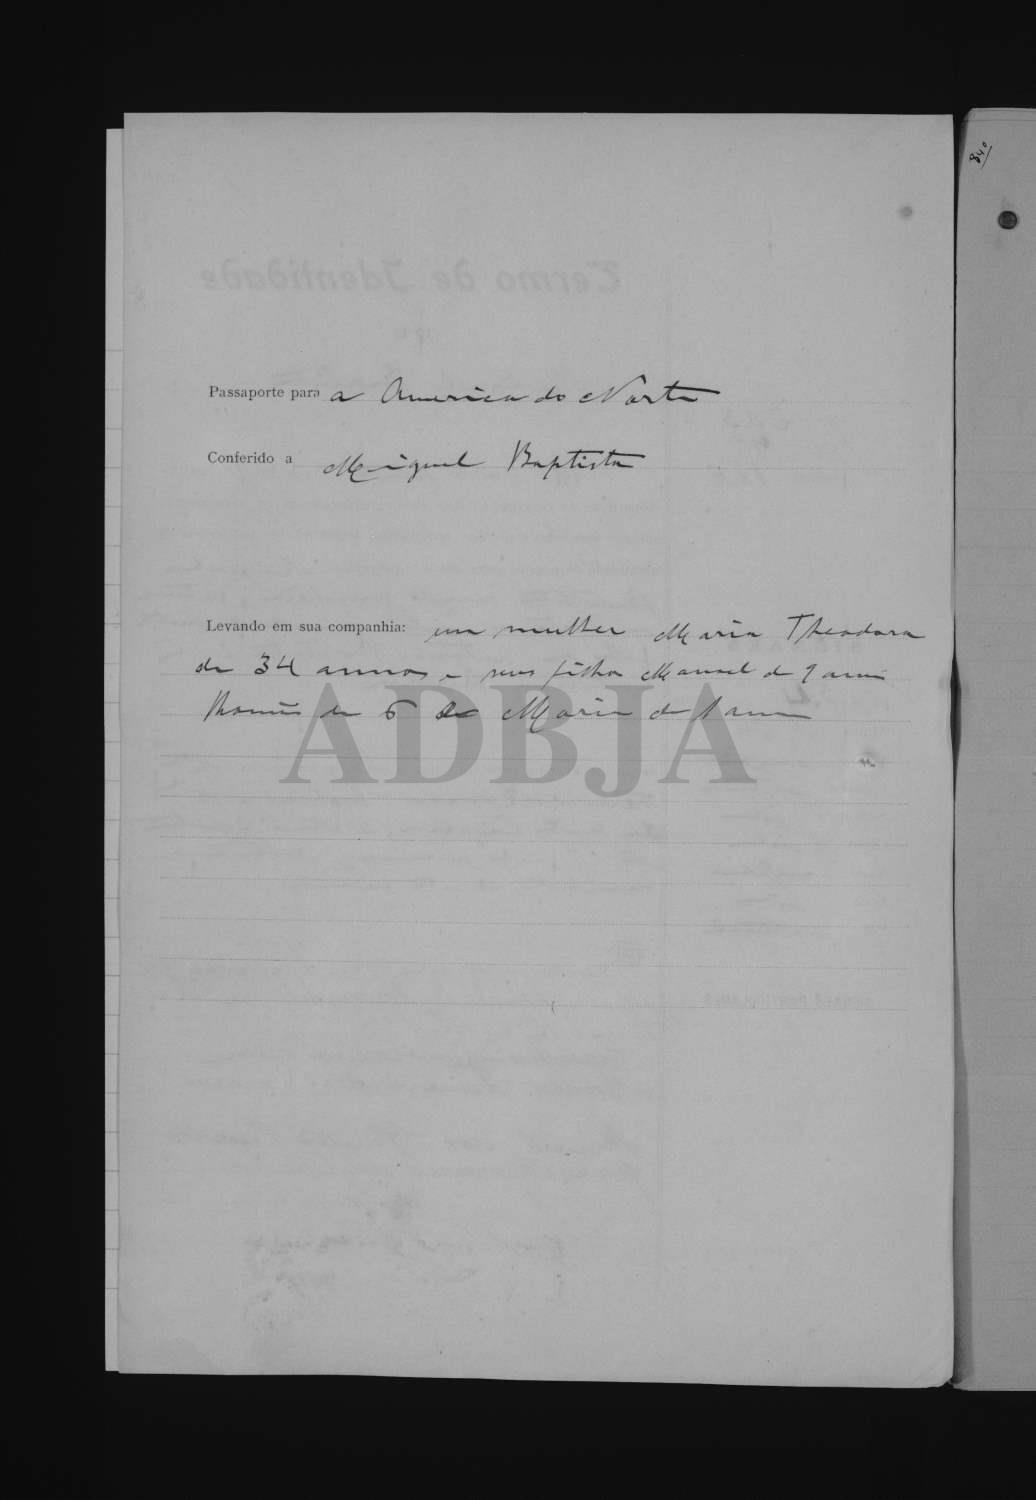 840
Passaporte para a America do Norte
Conferido a Miguel Baptista
Levando em sua companhia: sua mulher Maria Theodora
de 34 annos e seus filhos Manuel de 9 annos
de 6 e Maria de 1 anno
ADBJA